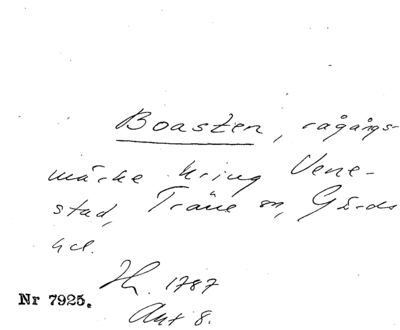 Boasten, rågångs-
märke kring Vene-
stad, Träne sn, Gärds
hd.
Hh. 1787
Nr 7925.
Akt 8.